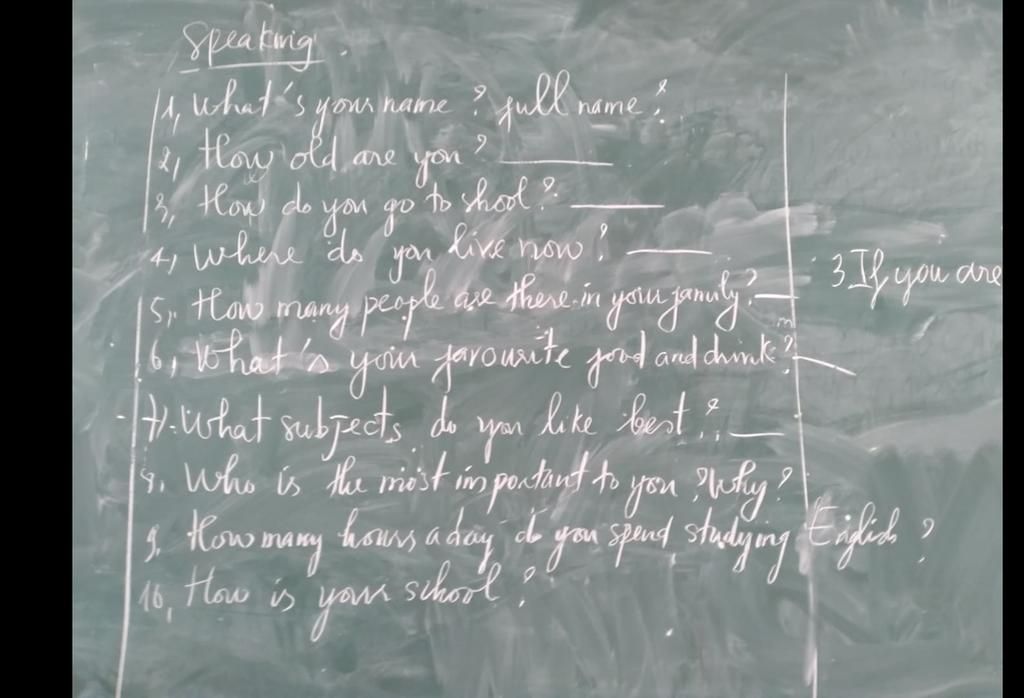 Speaking.
1, What's your name? full name?
2, How old are you?
3, How do you go to shool?
4, Where do you live now?
5, How many people are there in your family?
6, What's your favourite food and drink?
7, What subjects do you like best?
8. Who is the most important to you? Why?
9. How many hours a day do you spend studying English?
10, How is your school?
3 If you are